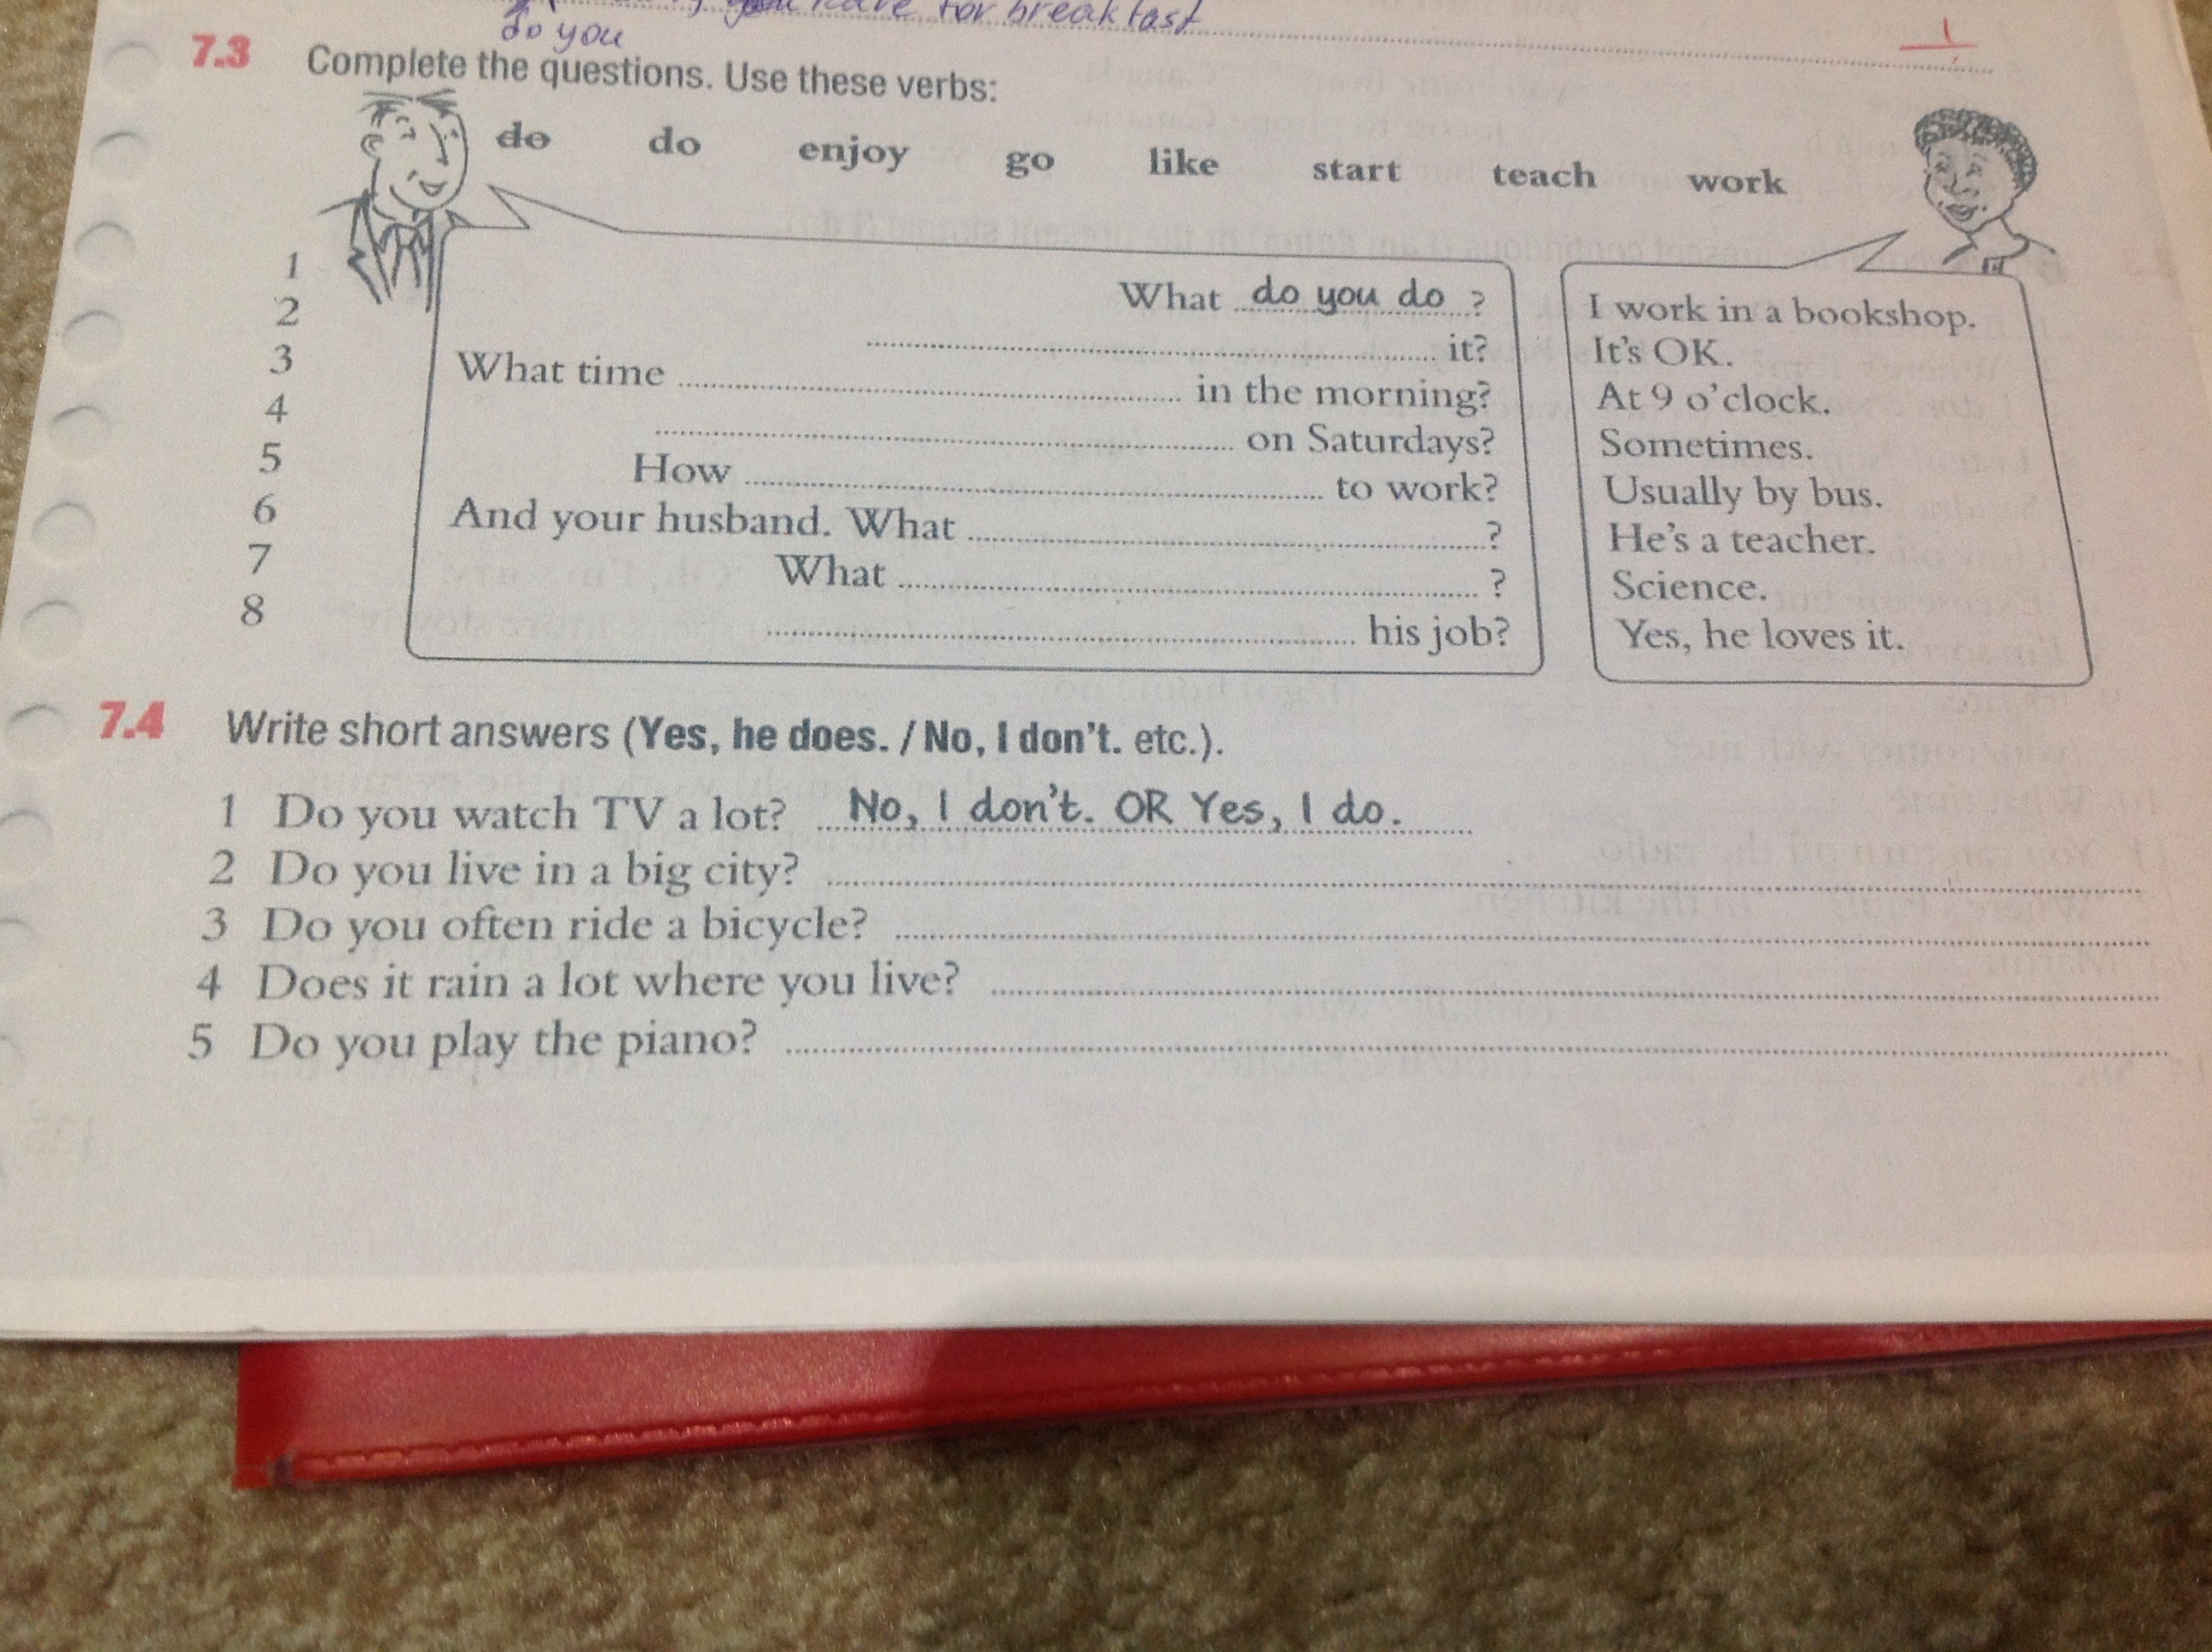 have for breakfast
do you
7.3 Complete the questions. Use these verbs:
do do enjoy go like start teach work
1 What do you do ? I work in a bookshop.
2 it? It's OK.
3 What time in the morning? At 9 o'clock.
4 on Saturdays? Sometimes.
5 How to work? Usually by bus.
6 And your husband. What ? He's a teacher.
7 What ? Science.
8 his job? Yes, he loves it.
7.4 Write short answers (Yes, he does. / No, I don't. etc.).
1 Do you watch TV a lot? No, I don't. OR Yes, I do.
2 Do you live in a big city?
3 Do you often ride a bicycle?
4 Does it rain a lot where you live?
5 Do you play the piano?